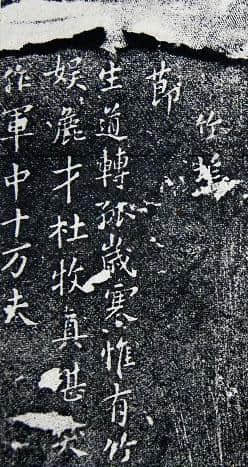 竹塢
節
生道轉孤歲寒惟有竹
娛麁才杜牧真堪笑
作軍中十万夫